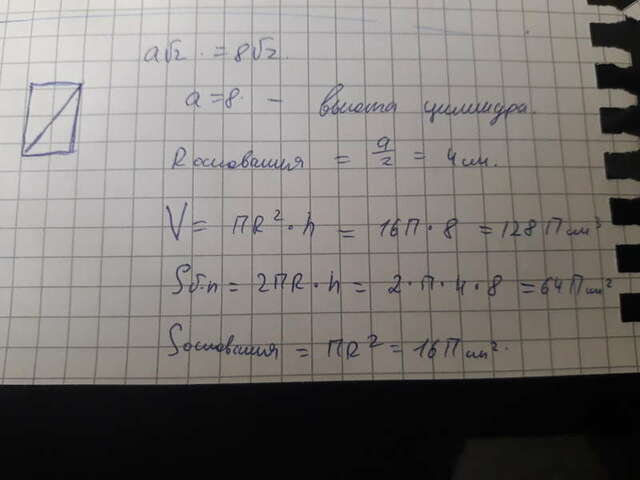 a√2 = 8√2.
a = 8. - высота цилиндра.
R основания = a/2 = 4 см.
V = ПR² · h = 16П · 8 = 128П см³
Sб.п = 2ПR · h = 2 · П · 4 · 8 = 64П см²
Sоснования = ПR² = 16П см².